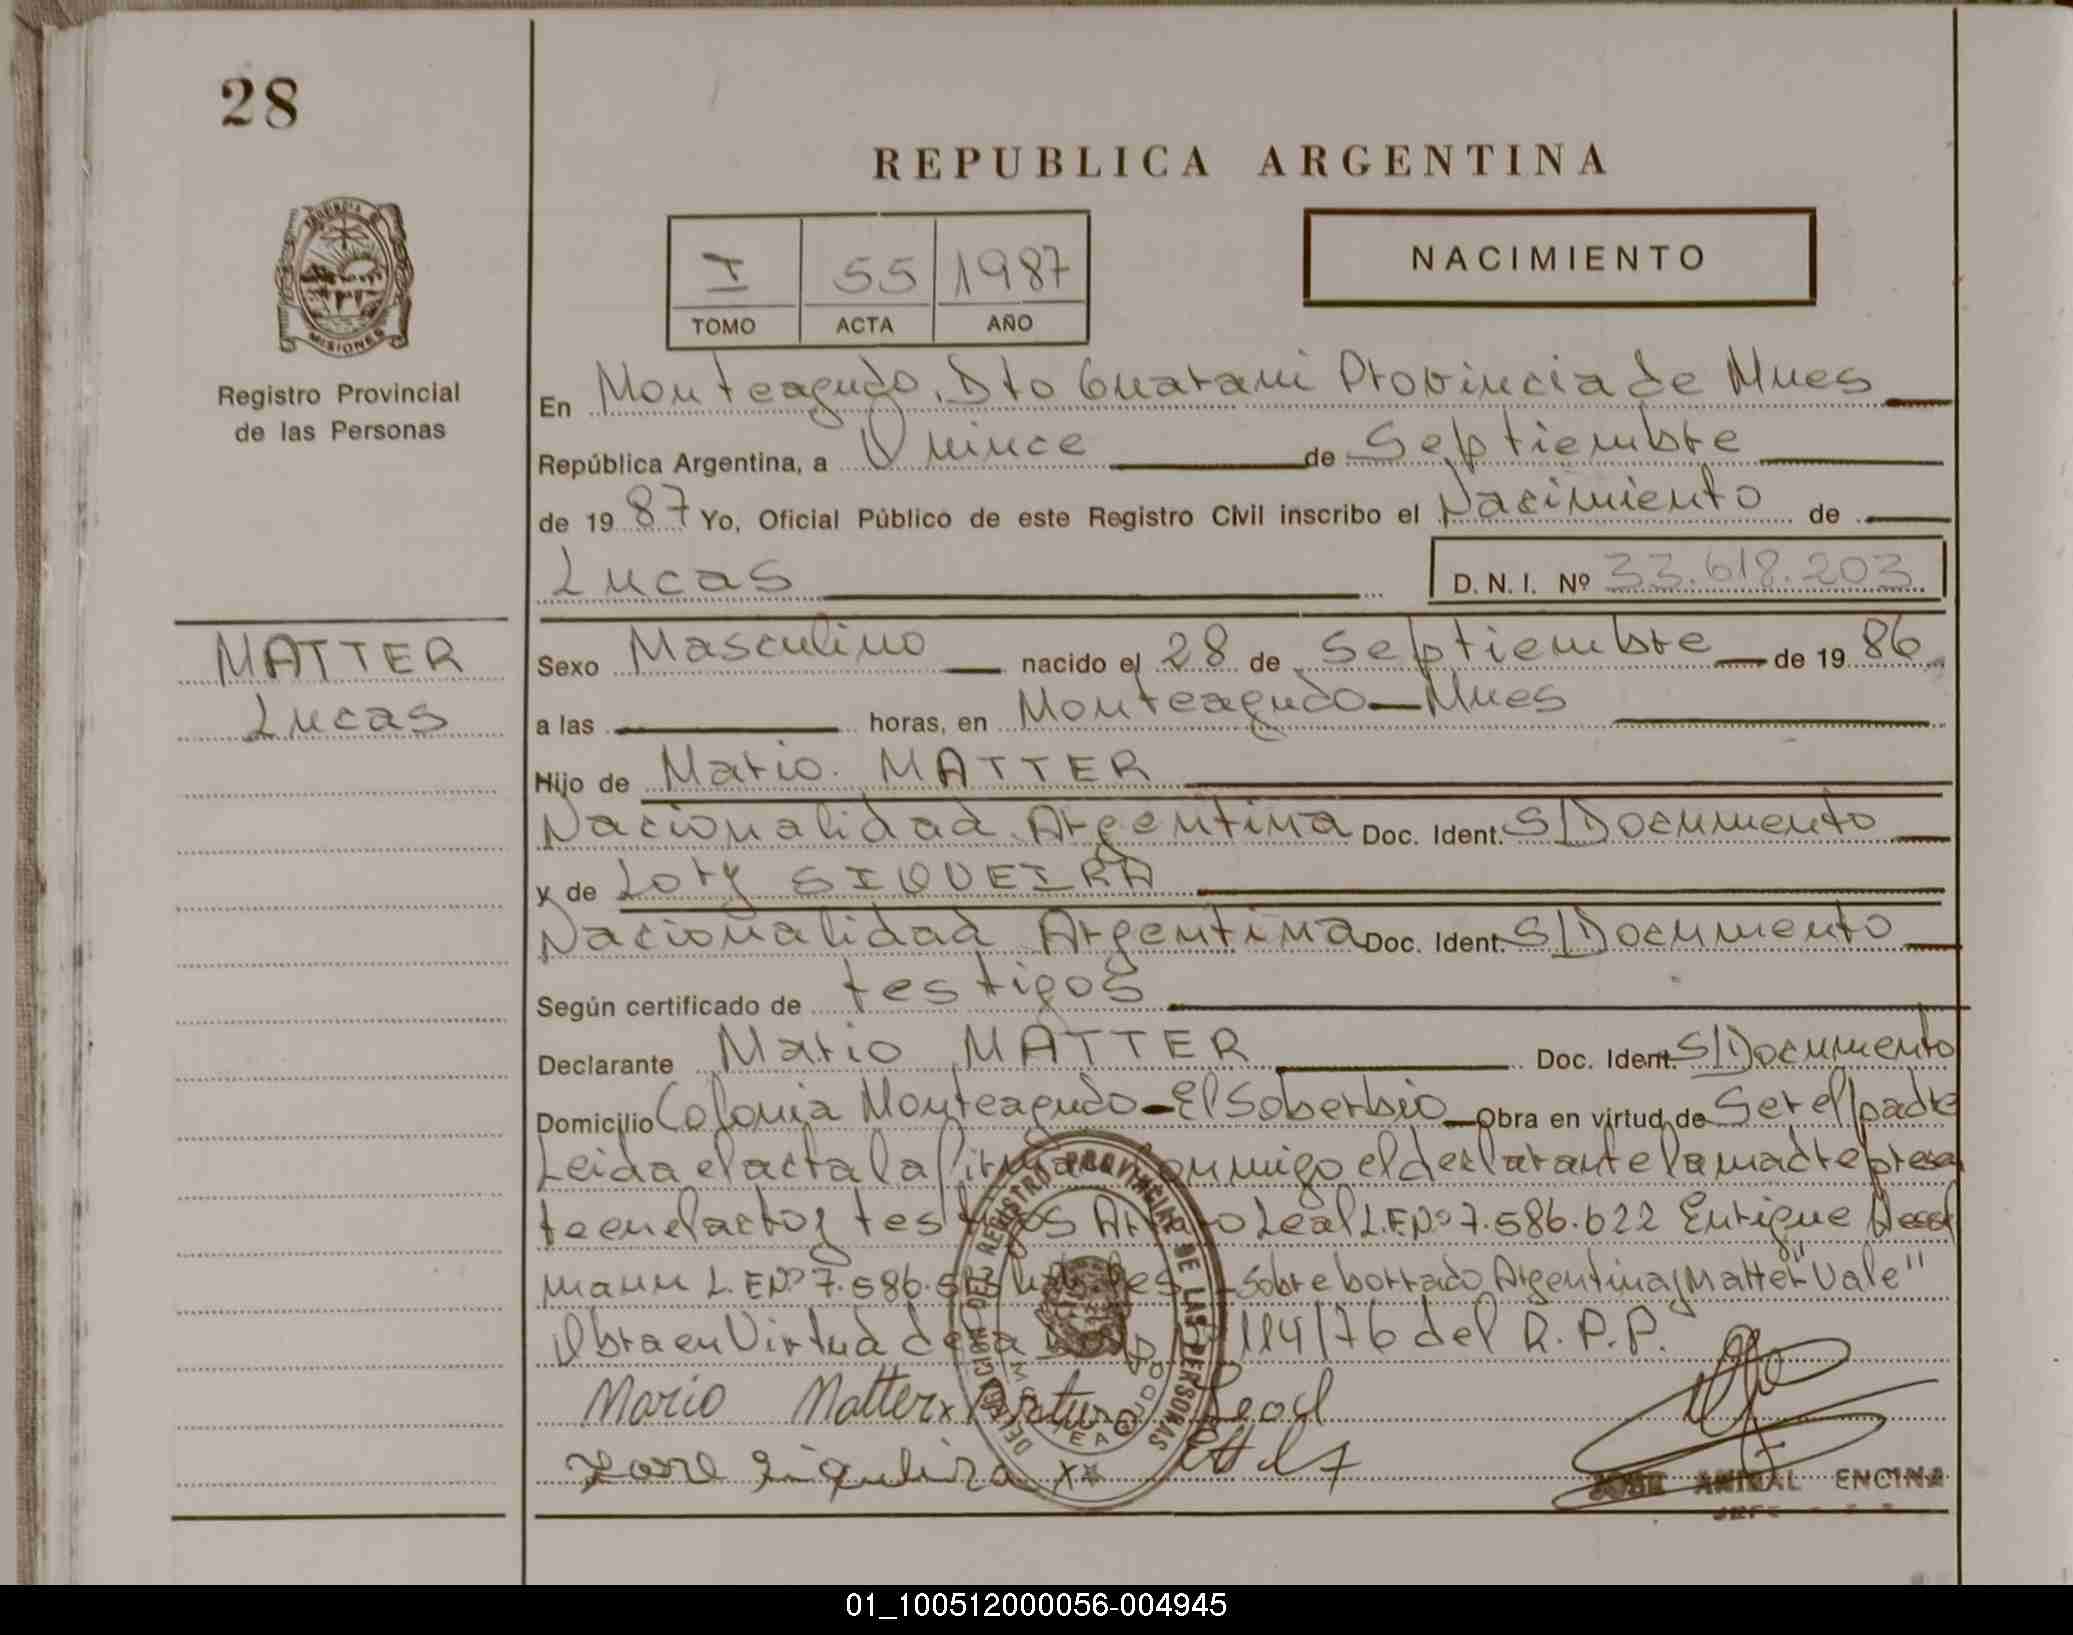 28
REPUBLICA ARGENTINA
PROVINCIA D
MISIONES
Registro Provincial
de las Personas
I 55 1987
TOMO ACTA AÑO
NACIMIENTO
En Monteagudo. Dto Guarani Provincia de Mnes
República Argentina, a Quince de Septiembre
de 19 87 Yo, Oficial Público de este Registro Civil inscribo el Nacimiento de
Lucas D. N. I. Nº 33.618.203
MATTER
Lucas
Sexo Masculino nacido el 28 de Septiembre de 19 86
a las horas, en Monteagudo Mnes
Hijo de Mario. MATTER
Nacionalidad Argentina Doc. Ident. S/Documento
y de Lory SIQUEIRA
Nacionalidad Argentina Doc. Ident. S/Documento
Según certificado de testigos
Declarante Mario MATTER Doc. Ident. S/Documento
Domicilio Colonia Monteagudo El Soberbio Obra en virtud de Ser el padre
Leida el acta la firman conmigo el declarante la madre presen
te en el acto y testigos Leal L.E Nº 7.586.622 Enrique
mann L.E Nº 7.586. Sobre borrado Argentina y Matter "Vale"
Obra en Virtud de 114/76 del R.P.P.
REGISTRO PROVINCIAL DE LAS PERSONAS
MONTEAGUDO
Mario Matter x Arturo Leal
JOSE ANIBAL ENCINA
JEFE
01_100512000056-004945